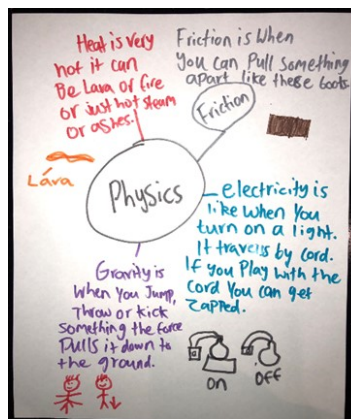 Heat is very
hot it can
Be Lava or fire
or just hot steam
or ashes.
Friction is When
You can Pull something
apart like these boots.
Friction
Láva
Physics
electricity is
like when You
turn on a light.
It travels by cord.
If you Play with the
cord You can get
Zapped.
Gravity is
When You Jump,
Throw or kick
something the force
Pulls it down to
the ground.
On
Off